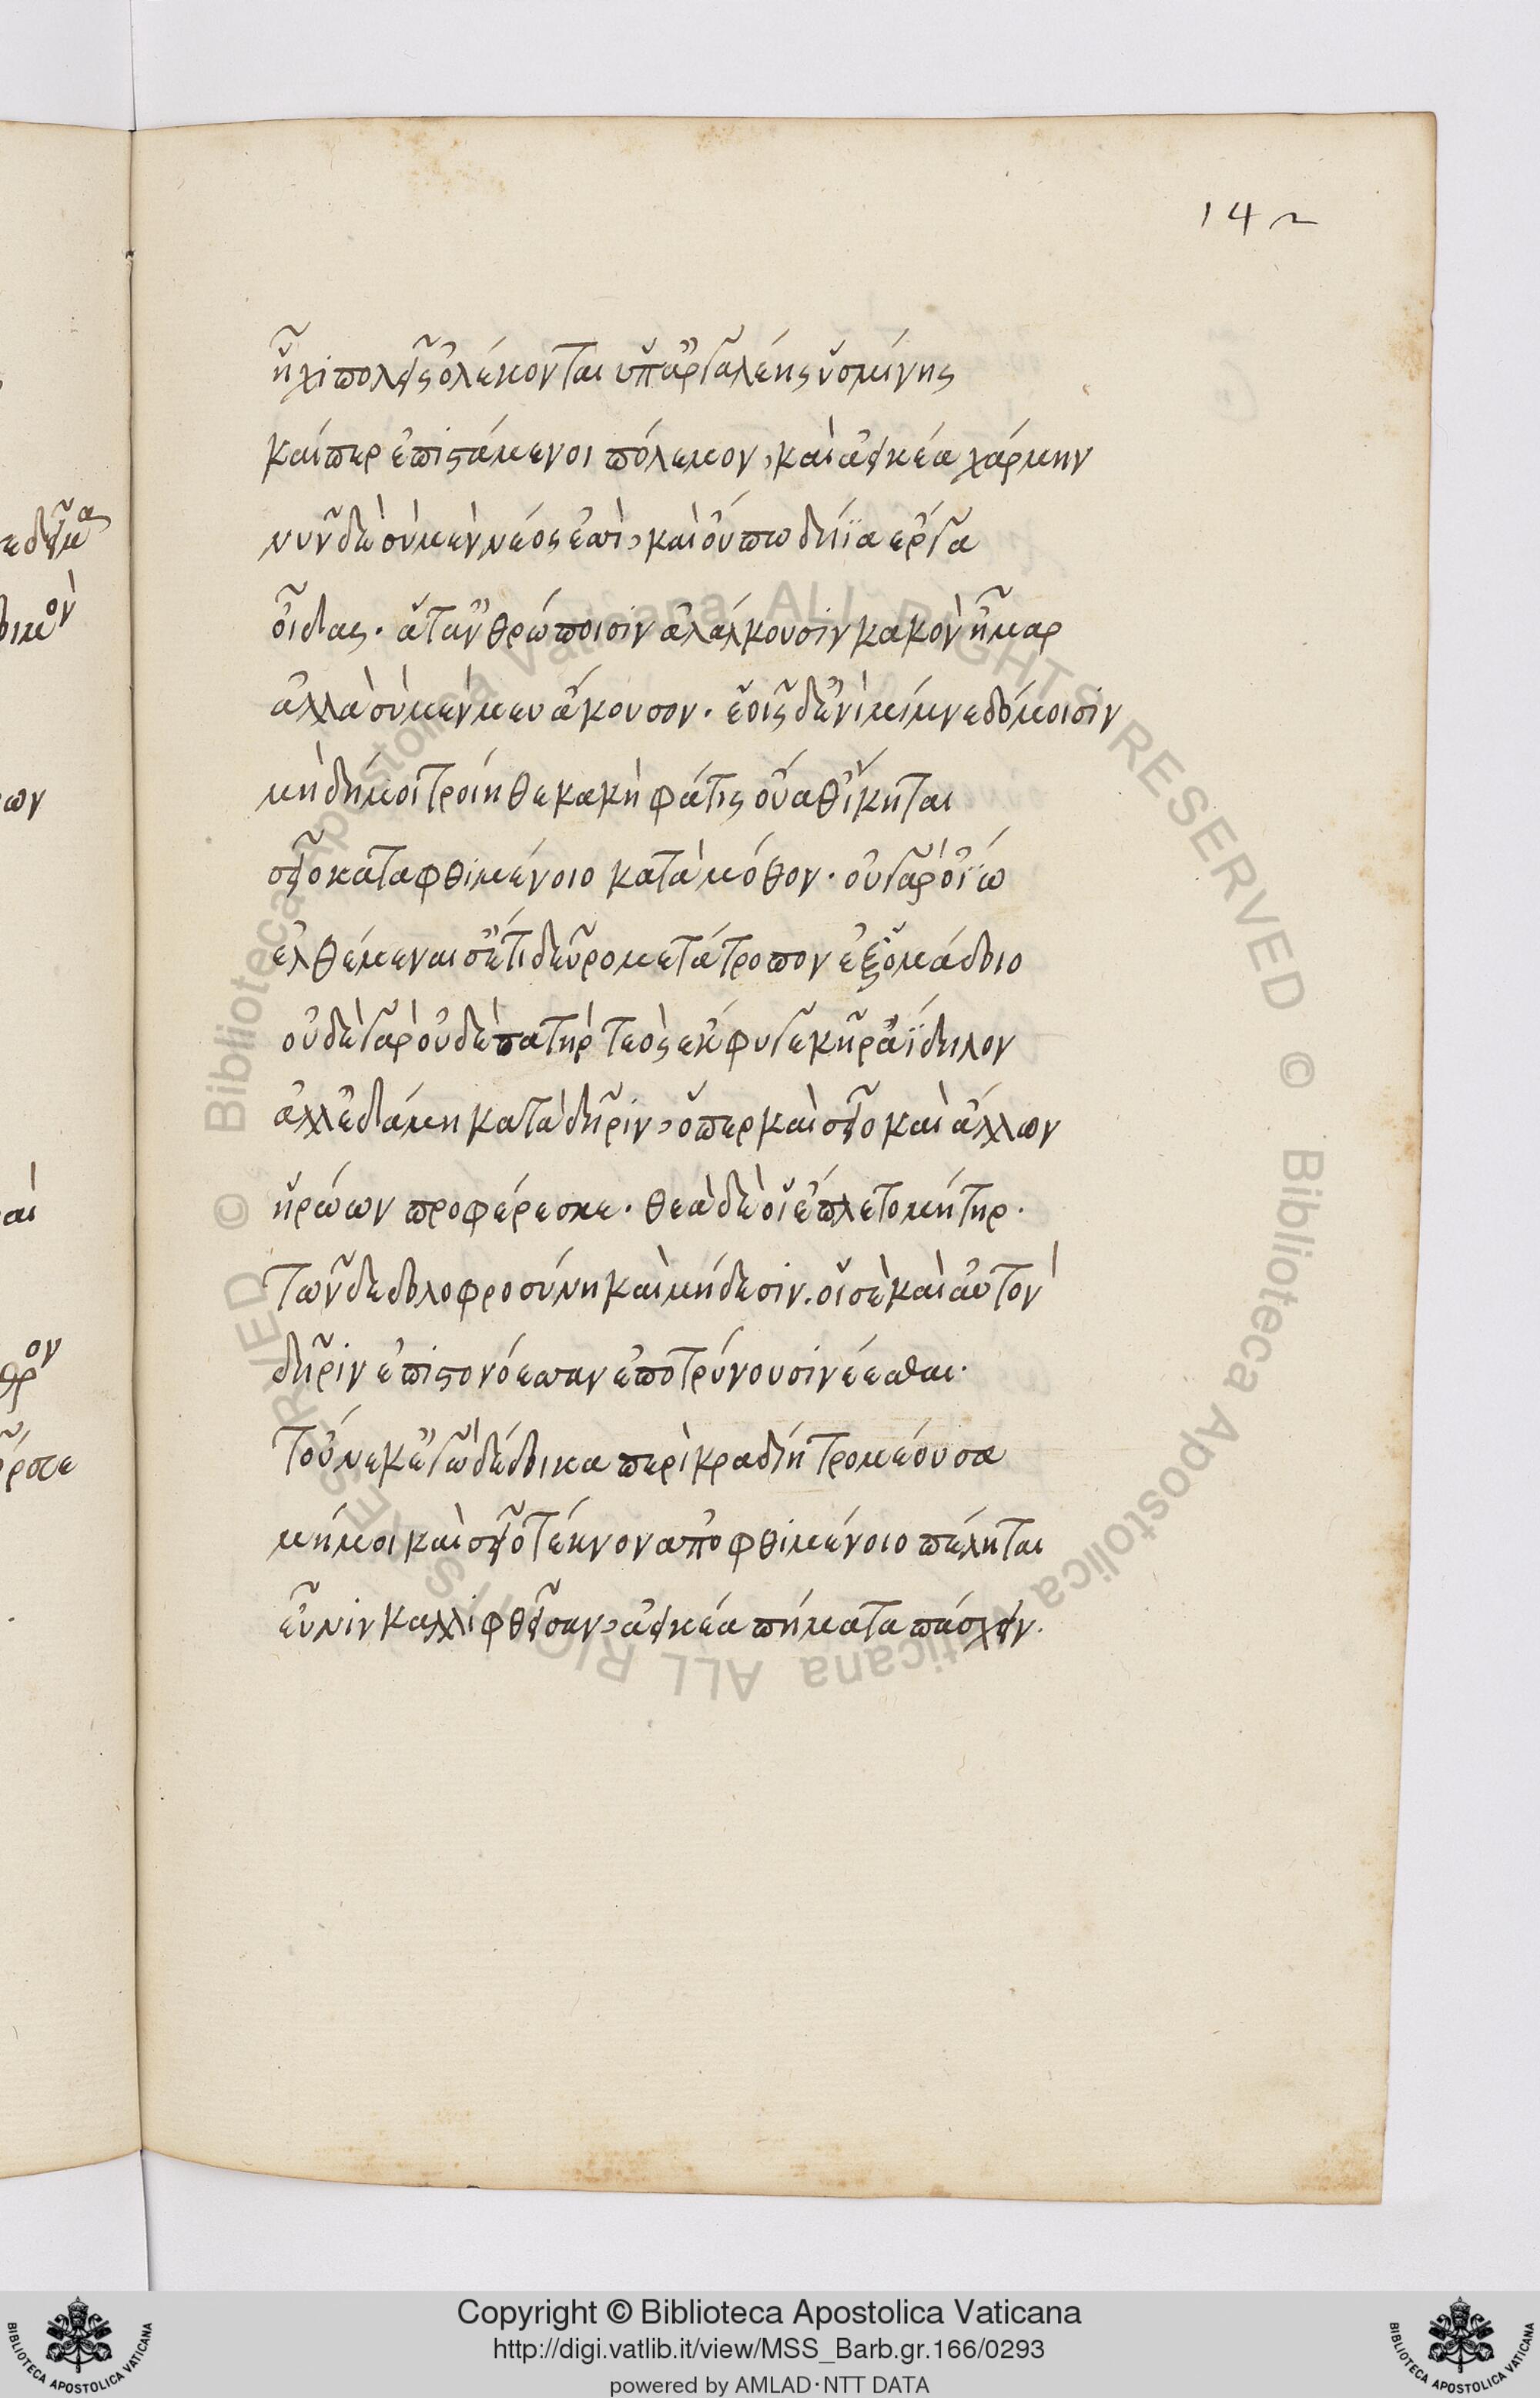 14 r
ἧχι πολεῖς ὀλέκονται ὑπ' ἀργαλέης ὑσμίνης
καίπερ ἐπιστάμενοι πόλεμον, καὶ ἀεικέα χάρμην
νῦν δὲ σὺ μὲν νέος ἐσσὶ, καὶ οὔπω δήϊα ἔργα
οἶδας. ἅτ' ἀνθρώποισιν ἀλάλκουσιν κακὸν ἦμαρ
ἀλλὰ σὺ μὲν μευ ἄκουσον. ἑοῖς δ' ἐνὶ μίμνε δόμοισιν
μὴ δή μοι τροίηθε κακὴ φάτις οὔαθ' ἵκηται
σεῖο καταφθιμένοιο κατὰ μόθον. οὐ γὰρ ὀΐω
ἐλθέμεναι σ' ἔτι δεῦρο μετάτροπον ἐξ ὁμάδοιο
οὐδὲ γὰρ οὐδὲ πατὴρ τεὸς ἔκφυγε κῆρ' ἀΐδηλον
ἀλλ' ἐδάμη κατὰ δῆριν, ὅπερ καὶ σεῖο καὶ ἄλλων
ἡρώων προφέρεσκε. θεὰ δέ οἱ ἔπλετο μήτηρ.
τῶνδε δολοφροσύνη καὶ μήδεσιν. οἵ σὲ καὶ αὐτὸν
δῆριν ἐπὶ στονόεσσαν ἐποτρύνουσι νέεσθαι.
τούνεκ' ἐγὼ δέδοικα περὶ κραδίη τρομέουσα
μή μοι καὶ σεῖο τέκνον ἀποφθιμένοιο πέληται
εὖνιν καλλιφθεῖσαν, ἀεικέα πήματα πάσχειν.
Copyright © Biblioteca Apostolica Vaticana
http://digi.vatlib.it/view/MSS_Barb.gr.166/0293
powered by AMLAD·NTT DATA